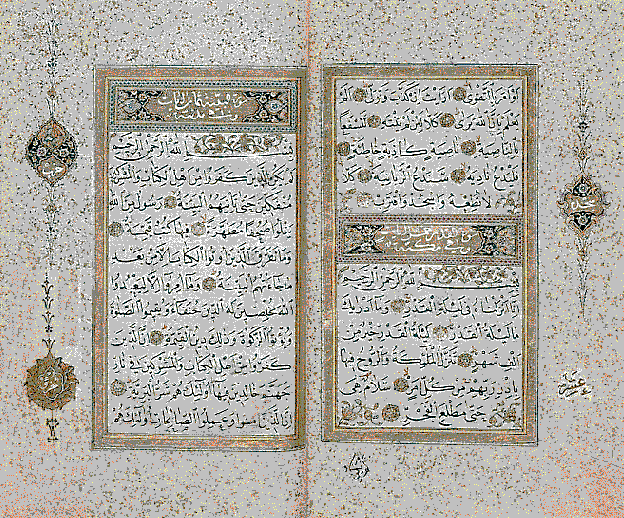 أو أمر بالتقوى أرأيت إن كذب وتولى ألم
يعلم بأن الله يرى كلا لئن لم ينته لنسفعا
بالناصية ناصية كاذبة خاطئة
فليدع ناديه سندع الزبانية كلا
لا تطعه واسجد واقترب
بسم الله الرحمن الرحيم
إنا أنزلناه في ليلة القدر وما أدراك
ما ليلة القدر ليلة القدر خير من
ألف شهر تنزل الملئكة والروح فيها
بإذن ربهم من كل أمر سلام هي
حتى مطلع الفجر
بسم الله الرحمن الرحيم
لم يكن الذين كفروا من أهل الكتاب والمشركين
منفكين حتى تأتيهم البينة رسول من الله
يتلوا صحفا مطهرة فيها كتب قيمة
وما تفرق الذين أوتوا الكتاب إلا من بعد
ما جاءتهم البينة وما أمروا إلا ليعبدوا
الله مخلصين له الدين حنفاء ويقيموا الصلوة
ويؤتوا الزكوة وذلك دين القيمة إن الذين
كفروا من أهل الكتاب والمشركين في نار
جهنم خالدين فيها أولئك هم شر البرية
إن الذين آمنوا وعملوا الصالحات أولئك هم